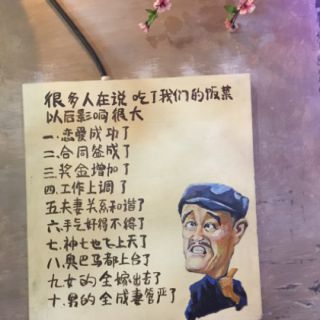 很多人在说 吃了我们的饭菜
以后影响很大
一.恋爱成功了
二.合同签成了
三.奖金增加了
四.工作上调了
五.夫妻关系和谐了
六.手气好得不得了
七.神七也飞上天了
八.奥巴马都上台了
九.女的全嫁出去了
十.男的全成妻管严了